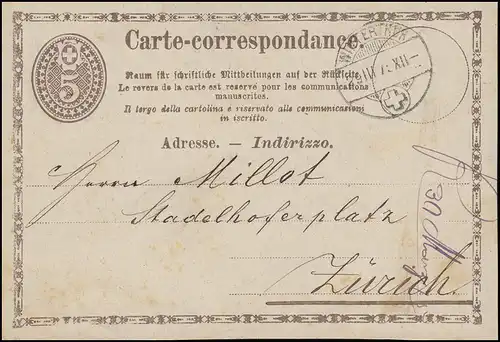 Carte-correspondance.
Raum für schriftliche Mittheilungen auf der Rückseite.
Le revers de la carte est reservé pour les communications
manuscrites.
Il tergo della cartolina è riservato alle communicazioni
in iscritto.
Adresse. — Indirizzo.
Herrn Millot
Stadelhoferplatz
Zürich